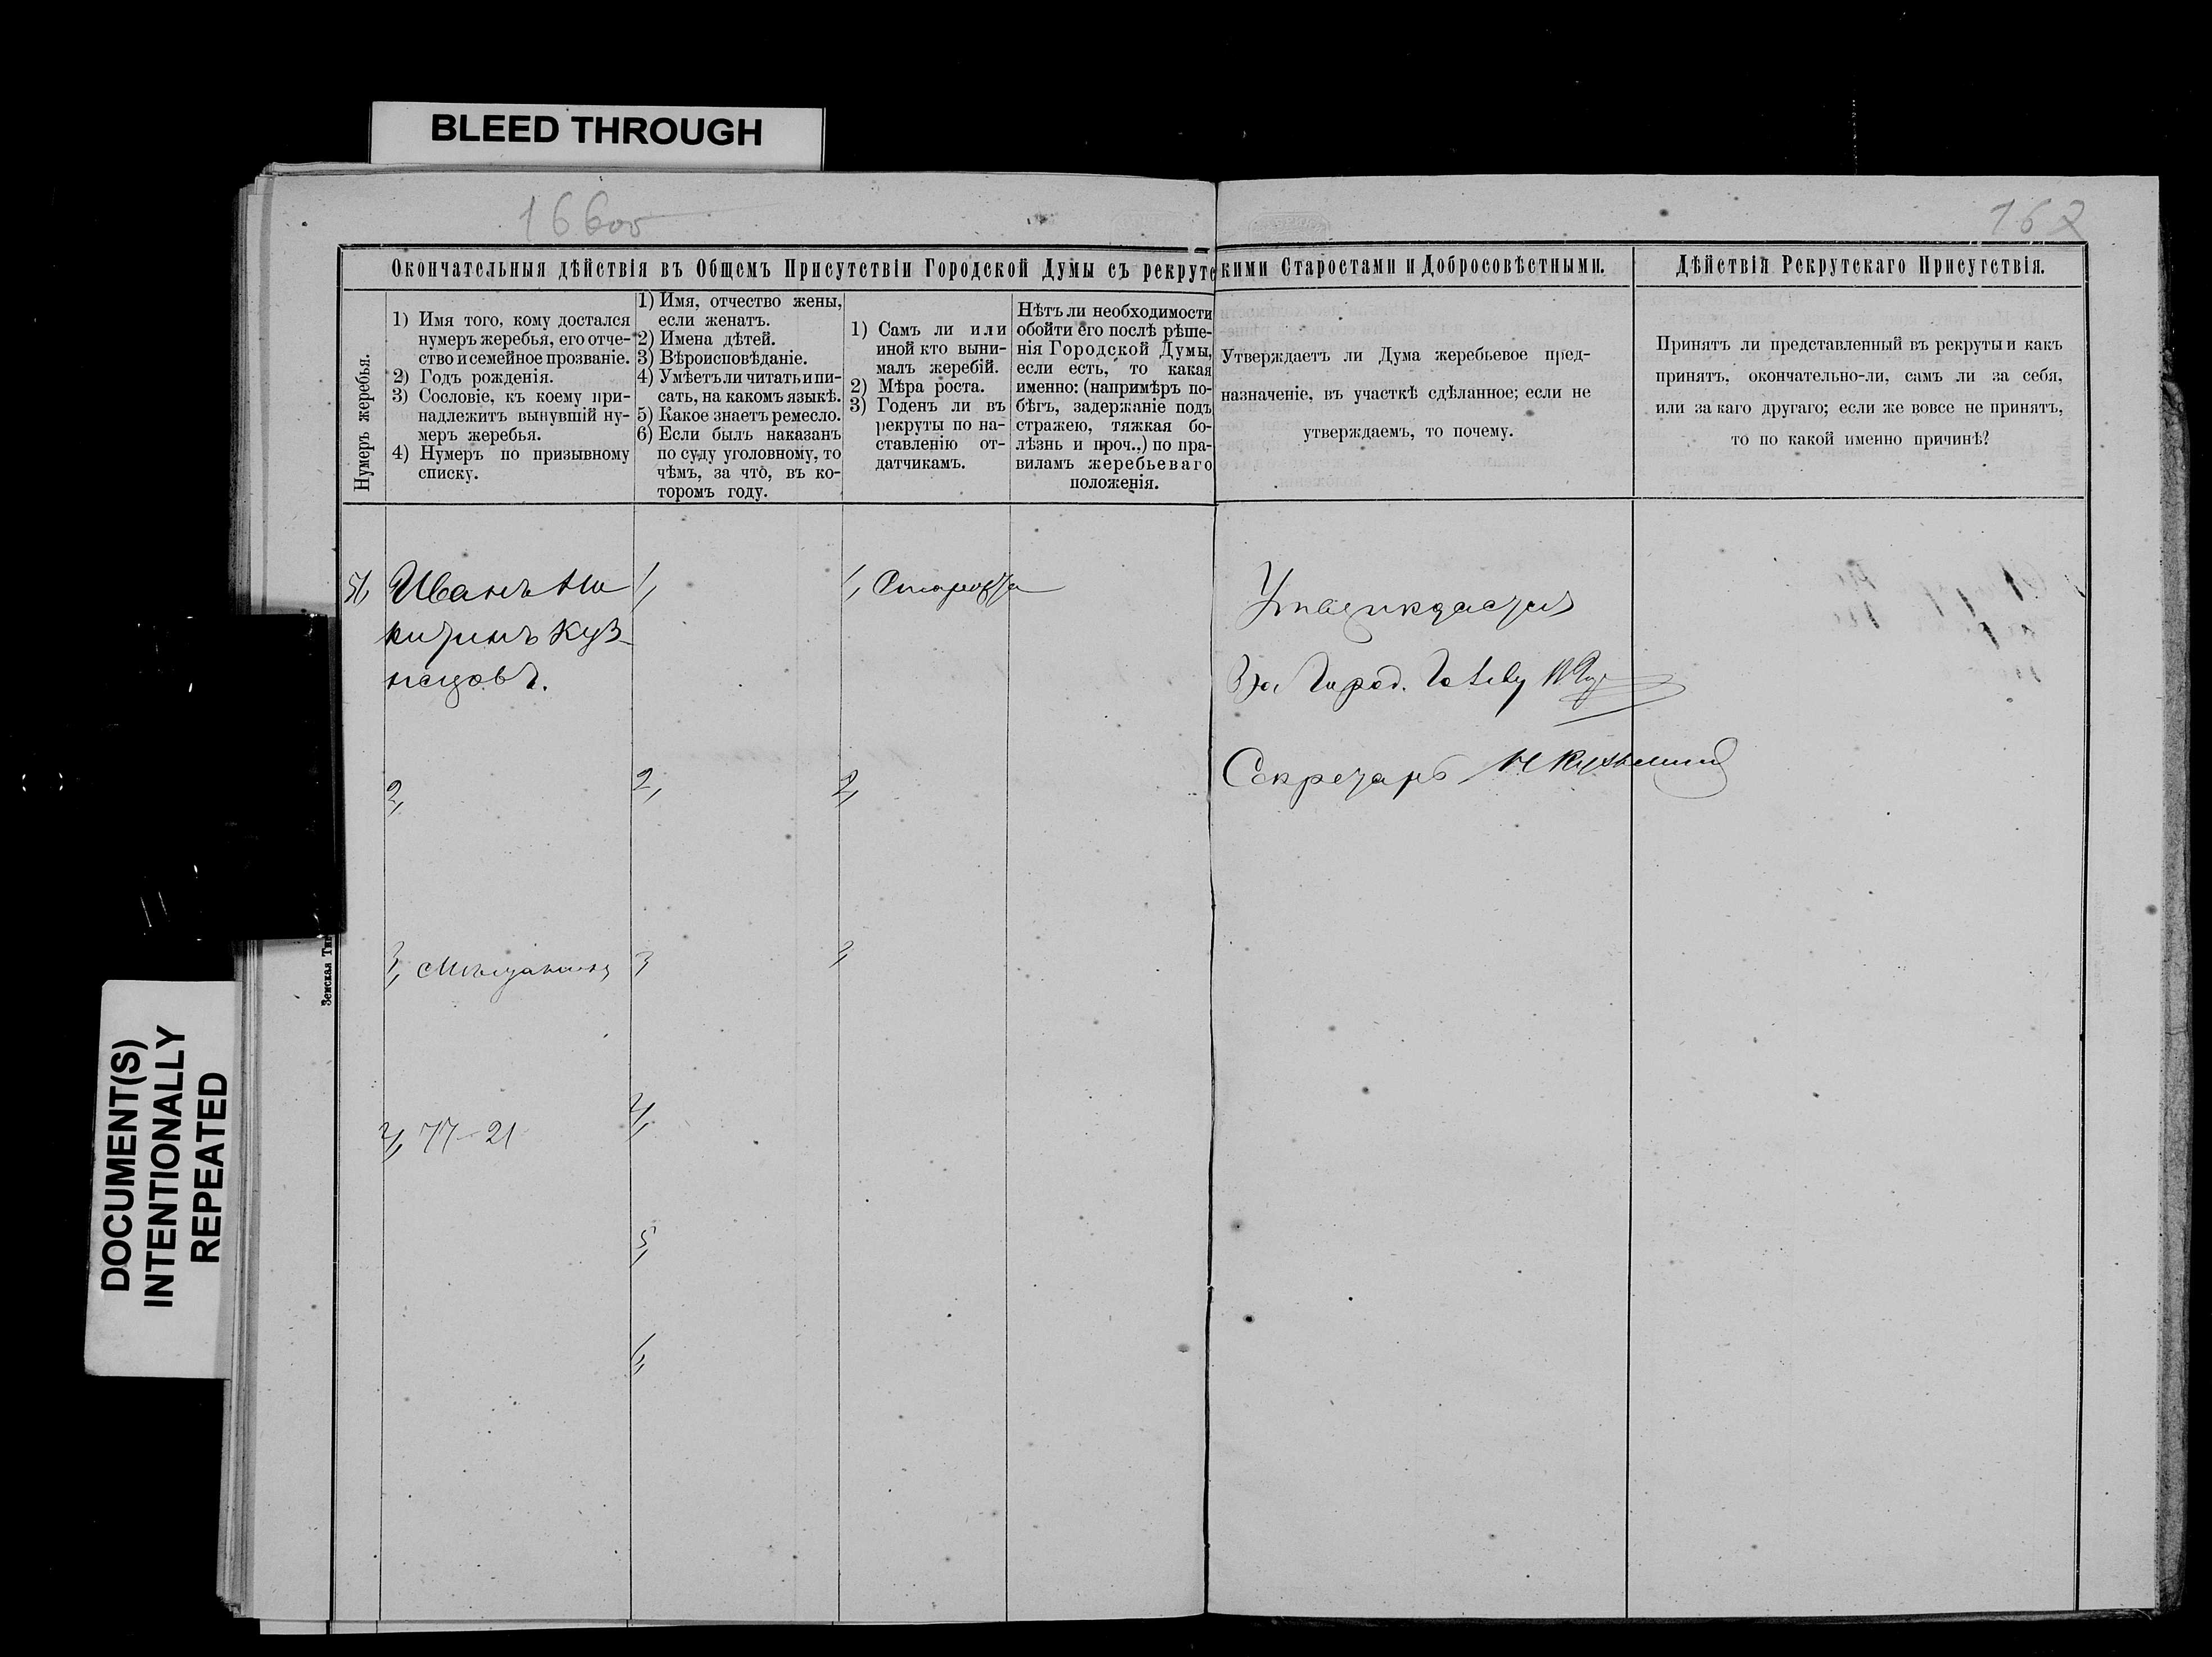 BLEED THROUGH
166об
167
Окончательныя дѣйствія въ Общемъ Присутствіи Городской Думы съ рекрутскими Старостами и Добросовѣстными.
Дѣйствія Рекрутскаго Присутствія.
Нумеръ жеребья.
1) Имя того, кому достался
нумеръ жеребья, его отче-
ство и семейное прозваніе.
2) Годъ рожденія.
3) Сословіе, къ коему при-
надлежитъ вынувшій ну-
меръ жеребья.
4) Нумеръ по призывному
списку.
1) Имя, отчество жены,
если женатъ.
2) Имена дѣтей.
3) Вѣроисповѣданіе.
4) Умѣетъ ли читать и пи-
сать, на какомъ языкѣ.
5) Какое знаетъ ремесло.
6) Если былъ наказанъ
по суду уголовному, то
чѣмъ, за что, въ ко-
торомъ году.
1) Самъ ли или
иной кто выни-
малъ жеребій.
2) Мѣра роста.
3) Годенъ ли въ
рекруты по на-
ставленію от-
датчикамъ.
Нѣтъ ли необходимости
обойти его послѣ рѣше-
нія Городской Думы,
если есть, то какая
именно: (напримѣръ по-
бѣгъ, задержаніе подъ
стражею, тяжкая бо-
лѣзнь и проч..) по пра-
виламъ жеребьеваго
положенія.
Утверждаетъ ли Дума жеребьевое пред-
назначеніе, въ участкѣ сдѣланное; если не
утверждаемъ, то почему.
Принятъ ли представленный въ рекруты и какъ
принятъ, окончательно-ли, самъ ли за себя,
или за каго другаго; если же вовсе не принятъ,
то по какой именно причинѣ?
51, Иванъ Ни
китинъ Куз-
нецовъ.
2,
3, Мѣщанинъ
4, 77-21
1,
2,
3
4,
5,
6,
1, Староста
2,
3
Утверждается
За Город. Голову
Секретарь Н Кузьминъ
Земская Тип
DOCUMENT(S)
INTENTIONALLY
REPEATED